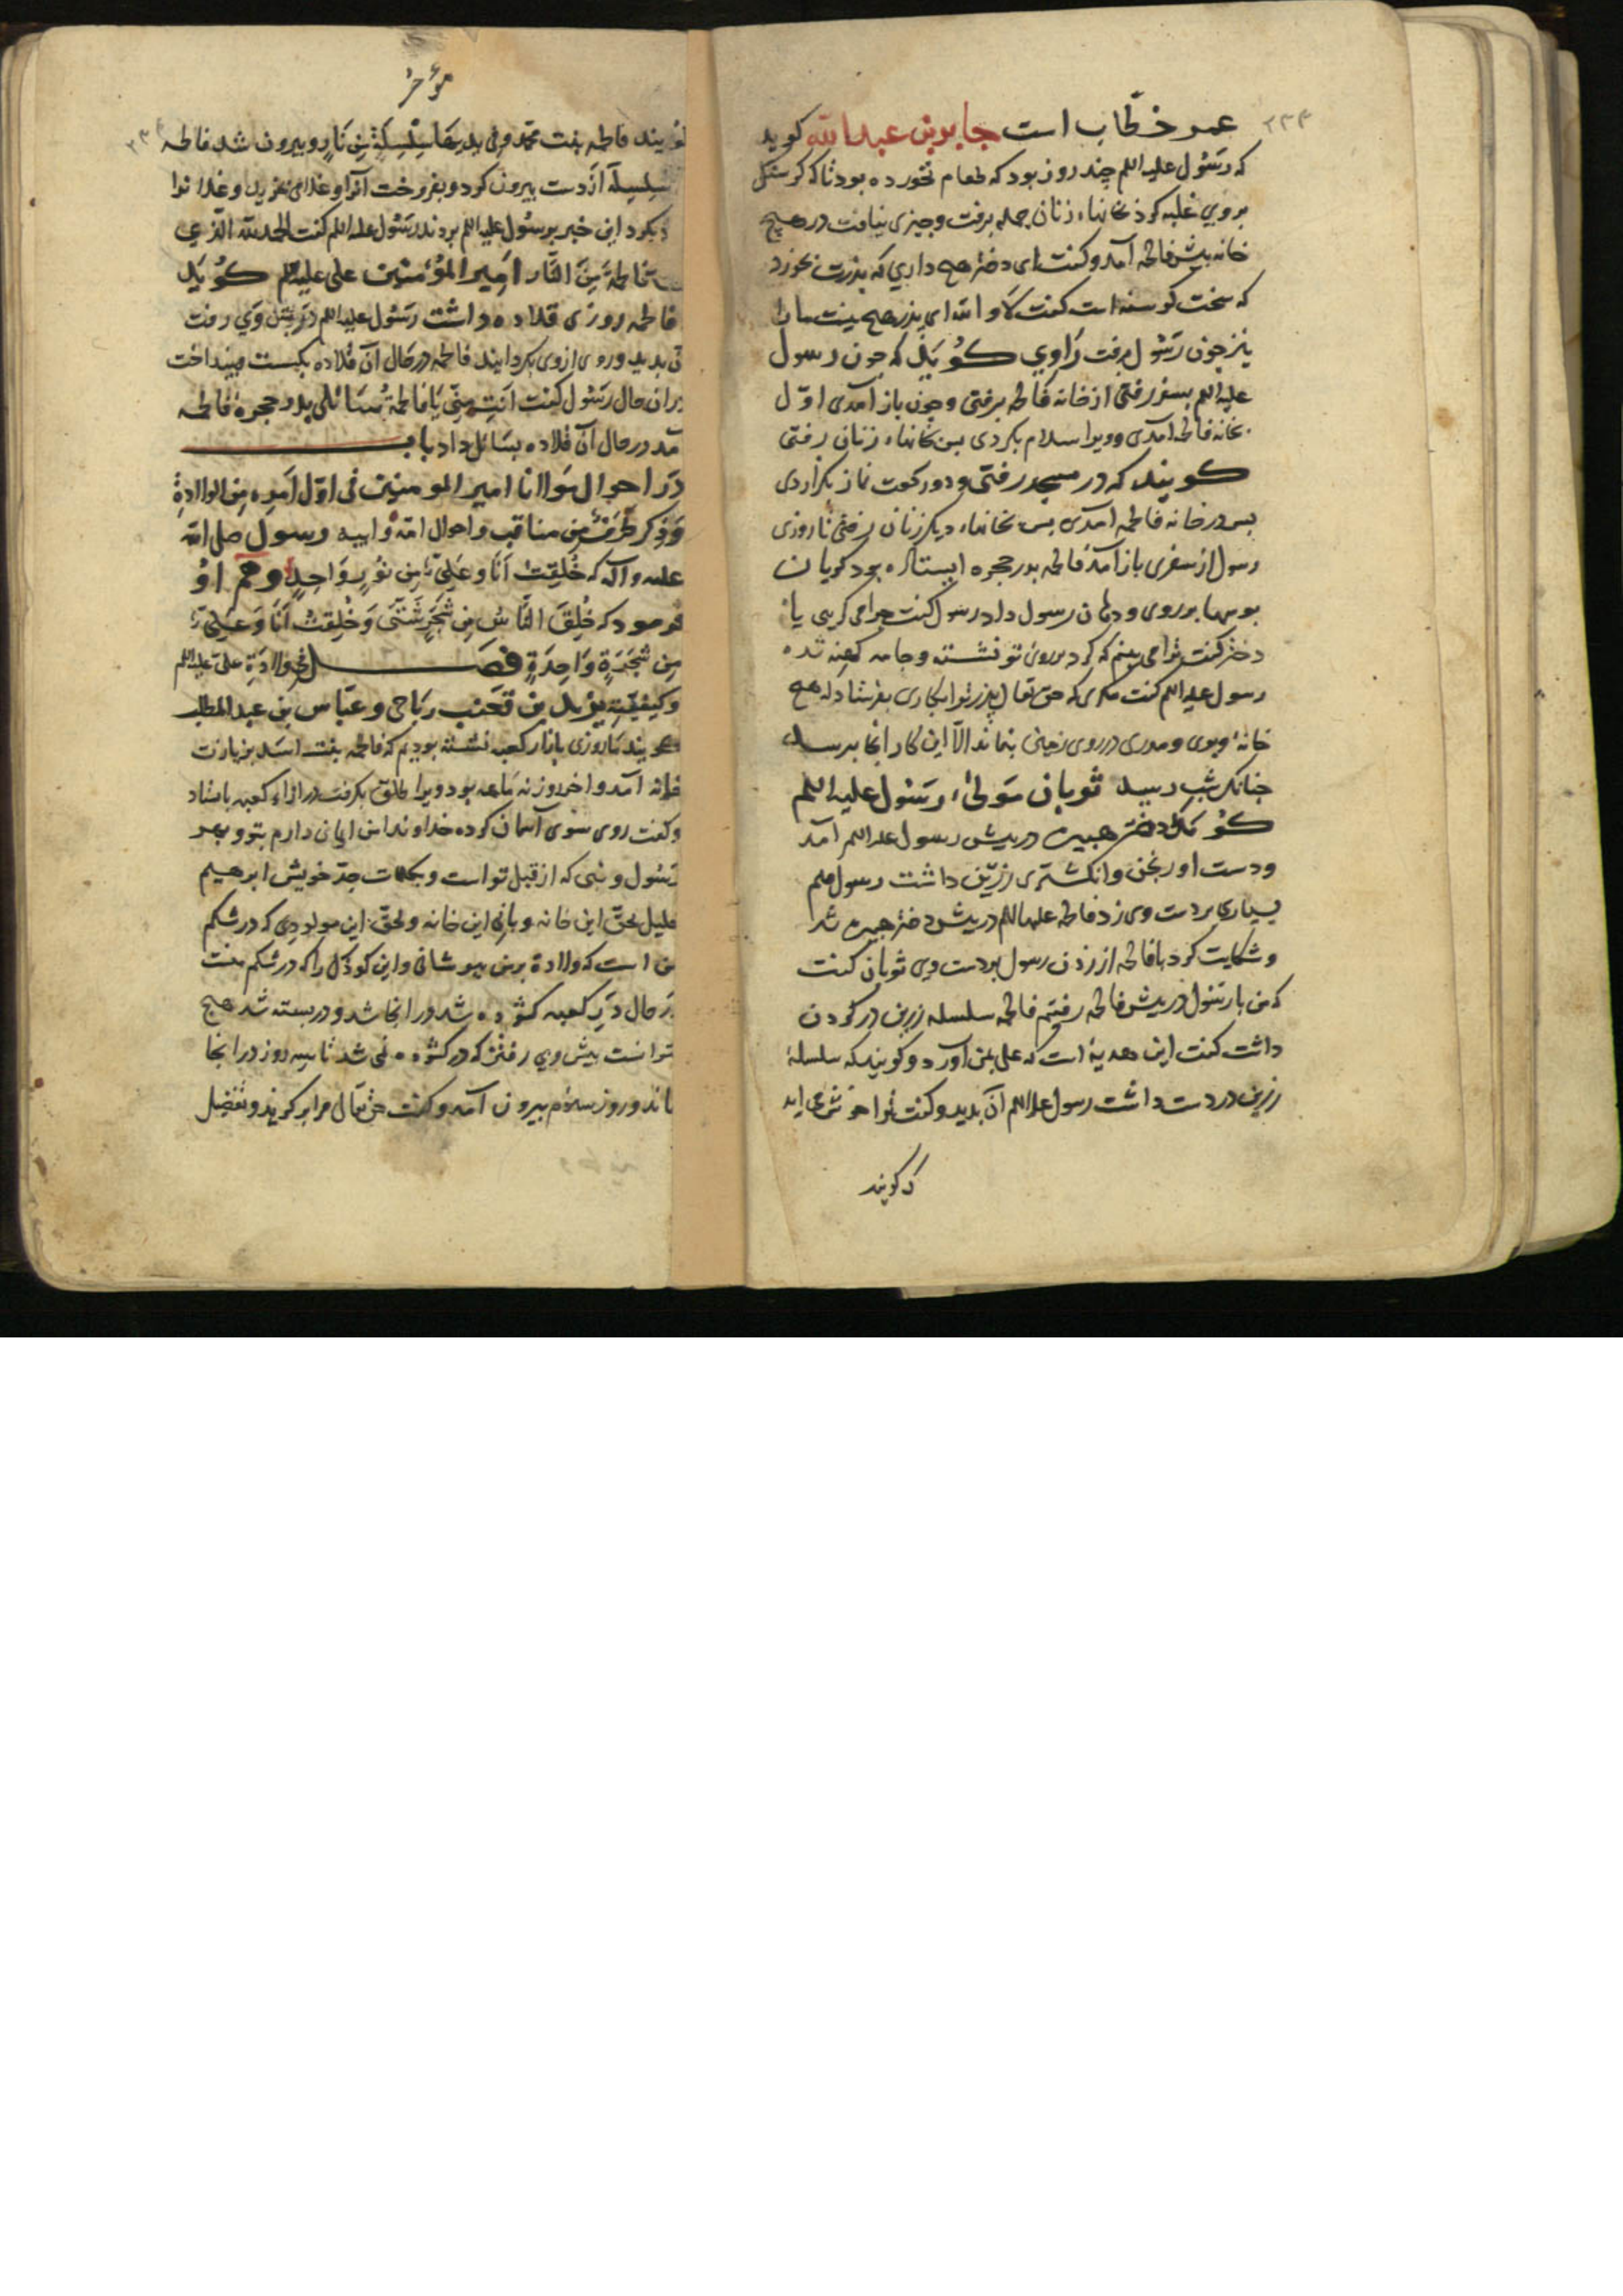 ۲۳۴
عمر خطّاب است جابر بن عبدالله کوید
که رَسُول علیه اللم چند روز بود که طعام نخورده بود تا که کرسنکی
بر وی غلبه کرد بخانهاء زنان جمله برفت و چیزی نیافت در هیچ
خانه پیش فاطمه آمد و کفت ای دختر هیچ داری که پذرت بخورد
که سخت کرسنه است کفت لا و الله ای پذر هیچ نیست مارا
نیز چون رَسُول برفت رَاوی کوُیَد که چون رسول
علیه اللم بسفر رفتی از خانه فاطمه برفتی و چون باز آمدی اوّل
بخانه فاطمه آمدی و ویرا سلام بکردی پس بخانهاء زنان رفتی
کویند که در مسجد رفتی و دو رکعت نماز بکزاردی
پس در خانه فاطمه آمدی پس بخانهاء دیکر زنان رفتی تا روزی
رسول از سفری باز آمد فاطمه بدر حجره ایستاده بود کویان
بوسها بر روی و دهان رسول داد رسول کفت چرا می کریی یا
دختر کفت ترا می بینم که کرد بر روی تو نشسته و جامه کهنه شده
رسول علیه اللم کفت مکری که حق تعالی پذر ترا بکاری بفرستاد که هیچ
خانهٔ وبری و مدری در روی زمین بنماند الّا این کار آنجا برسد
چنانک شب رسد ثوبان مَولیٰ رسُول علیه اللم
کوُید دختر هبیره در پیش رسول علیه اللم آمد
و دست اورنجن و انکشتری زرّین داشت رسول صلعم
بسیاری بر دست وی زد فاطمه علیها اللم در پیش دختر هبیره شد
و شکایت کرد با فاطمه از زدن رسول بر دست وی ثوبان کفت
که من با رسُول در پیش فاطمه رفتم فاطمه سلسله زرین در کردن
داشت کفت این هدیهٔ است که علی بمن آورد و کویند که سلسلهٔ
زرین در دست داشت رسول علیه اللم آن بدید و کفت ترا خوش می اید
که کویند
مؤخر
۲۳۴
کویند فاطمه بنت محمّد و فی یدِهَا سِلسِلةٌ مِن نَارٍ و بیرون شد فاطمه
سِلسِله از دست بیرون کرد و بفروخت آنرا و غلامی بخرید و غلام را
آزاد بکرد این خبر برسُول علیه اللم بردند رَسُول علیه اللم کفت الحمدلله الّذی
فاطمةَ مِنَ النَّار امیر المؤمنین علی علیه اللم کوُید
فاطمه روزی قلاده داشت رَسُول علیه اللم در پیش وَی رفت
آن بدید و روی از وی بکردانید فاطمه در حال آن قلاده بکسست و بینداخت
در آن حال رَسُول کفت اَنتِ مِنّی یَا فَاطمةُ سَائلی بدر حجرهٔ فاطمه
آمد در حال آن قلاده بسَائل داد باب
در احوال مَولانا امیر المومنین فی اوّل اَمرِه مِن الولادةِ
وَ ذِکر طَرَفٍ مِن مناقب و احوال امّه و ابیه رسول صلی الله
علیه و آله که خُلِقتُ اَنَا وَ عَلِیٌّ مِن نوُرٍ وَاحِدٍ و هم اوُ
فرمود که خُلِقَ النَّاسُ مِن شَجَرٍ شَتّی وَ خُلِقتُ اَنَا وَ عَلِیٌّ
مِن شَجَرَةٍ وَاحِدَةٍ فصل فی ولادَةِ علیّ علیه اللم
و کیفیته یزید بن قعنب ریاحی و عبّاس بن عبد المطلب
کویند ما روزی بازار کعبه نشسته بودیم که فاطمه بنت اسَد بزیارت
خانه آمد و آخر روز نه مَاهه بود ویرا طلق بکرفت در ازاء کعبه باستاد
و کفت روی سوی آسمان کرده خداوندا من ایمان دارم بتو و بهر
رَسُول و نبی که از قبل تو است و بکلمات جدّ خویش ابرهیم
خلیل بحق این خانه و بانی این خانه و بحق این مولودی که در شکم
من است که ولادة بر من میسر شانی و این کودک را که در شکم منست
در حال دَرِ کعبه کشوده شد و در آنجا شد و در بسته شد هیچ
نتوانست پیش وی رفتن که در کشوده نمی شد تا سه روز در آنجا
بماند و روز سیوم بیرون آمد و کفت حق تعالی مرا بر کزید و تفضیل